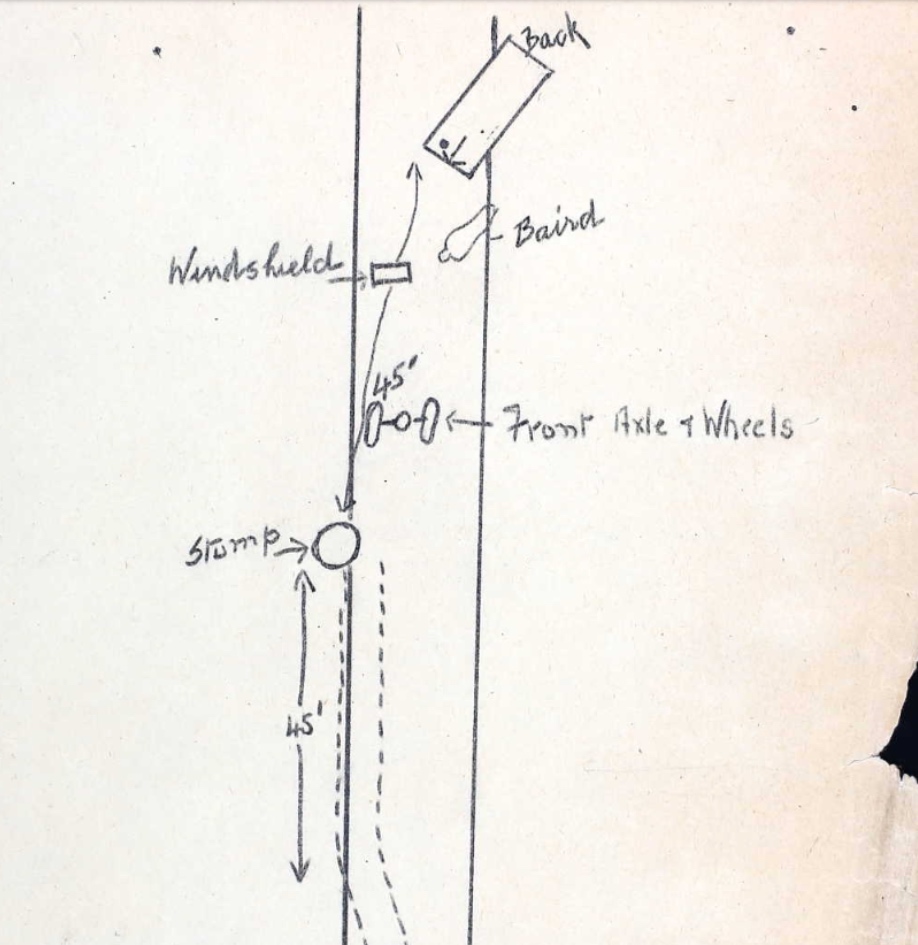 Back
K
Baird
Windshield
45'
Front Axle & Wheels
Stump
45'